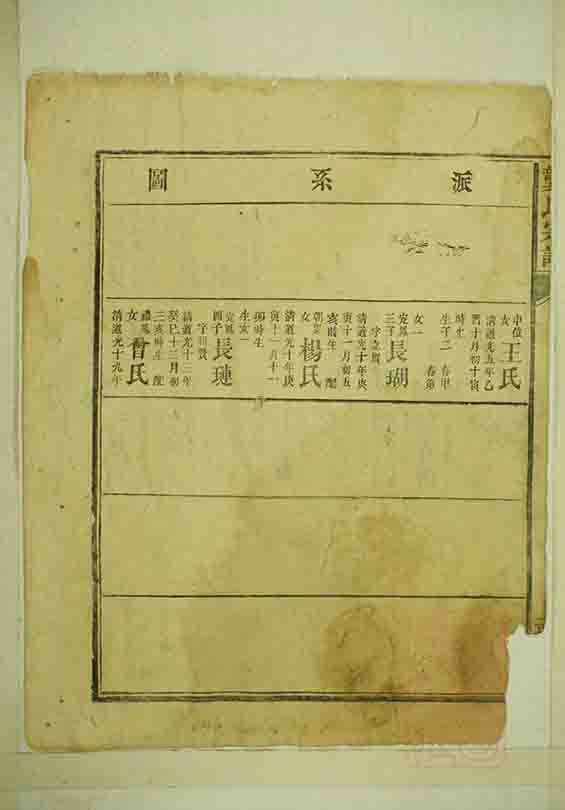 派系圖
中位
女
王氏
清道光五年乙
酉十月初十寅
時生
生子二 春甲
春弟
女一
定鳳
三子
長瑚
清道光十年庚
寅十一月初五
亥時生 配
女
楊氏
清道光十年庚
寅十一月十一
卯時生
生女一
定鳳
四子
長璉
清道光十三年
癸巳十二月初
三亥時生 配
女
曾氏
清道光十九年